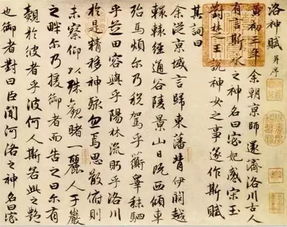 洛神賦 并序
黃初三年余朝京師還濟洛川古人
有言斯水之神名曰宓妃感宋玉
對楚王說神女之事遂作斯賦
其詞曰
余從京城言歸東藩背伊闕越
轘轅經通谷陵景山日既西傾車
殆馬煩爾乃稅駕乎蘅皋秣駟
乎芝田容與乎陽林流眄乎洛川
於是精移神駭忽焉思散俯則
未察仰以殊觀睹一麗人于巖
之畔爾乃援御者而告之曰爾有
覿於彼者乎彼何人斯若此之艷
也御者對曰臣聞河洛之神名曰宓